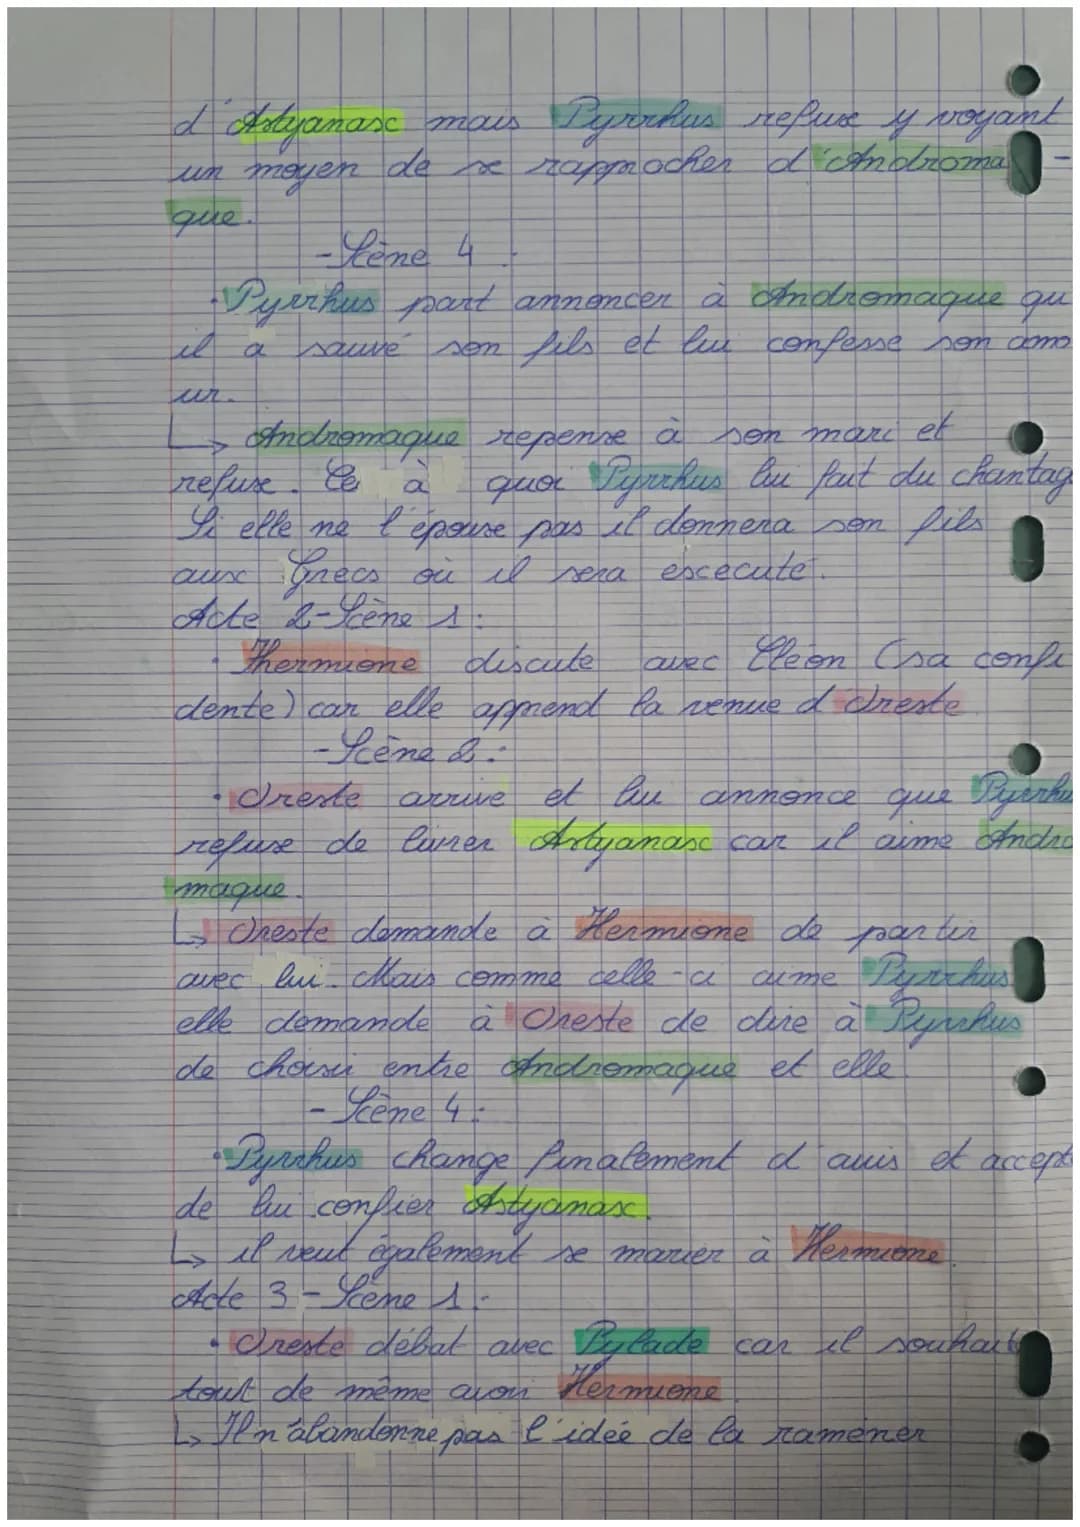 d'Astyanax mais Pyrrhus refuse y voyant
un moyen de se rapprocher d'Androma-
que.
-Scène 4 :
• Pyrrhus part annoncer à Andromaque qu
il a sauvé son fils et lui confesse son amo
ur.
↳ Andromaque repense à son mari et
refuse. Ce à quoi Pyrrhus lui fait du chantag
Si elle ne l'épouse pas il donnera son fils
aux Grecs où il sera exécuté.
Acte 2-Scène 1 :
• Hermione discute avec Cléon (sa confi
dente) car elle apprend la venue d'Oreste
-Scène 2 :
• Oreste arrive et lui annonce que Pyrrhu
refuse de livrer Astyanax car il aime Andro
maque.
↳ Oreste demande à Hermione de partir
avec lui. Mais comme celle-ci aime Pyrrhus
elle demande à Oreste de dire à Pyrrhus
de choisir entre Andromaque et elle
- Scène 4 :
• Pyrrhus change finalement d'avis et accept
de lui confier Astyanax.
↳ il veut également se marier à Hermione.
Acte 3-Scène 1 :
• Oreste débat avec Pylade car il souhaite
tout de même avoir Hermione
↳ Il n'abandonne pas l'idée de la ramener